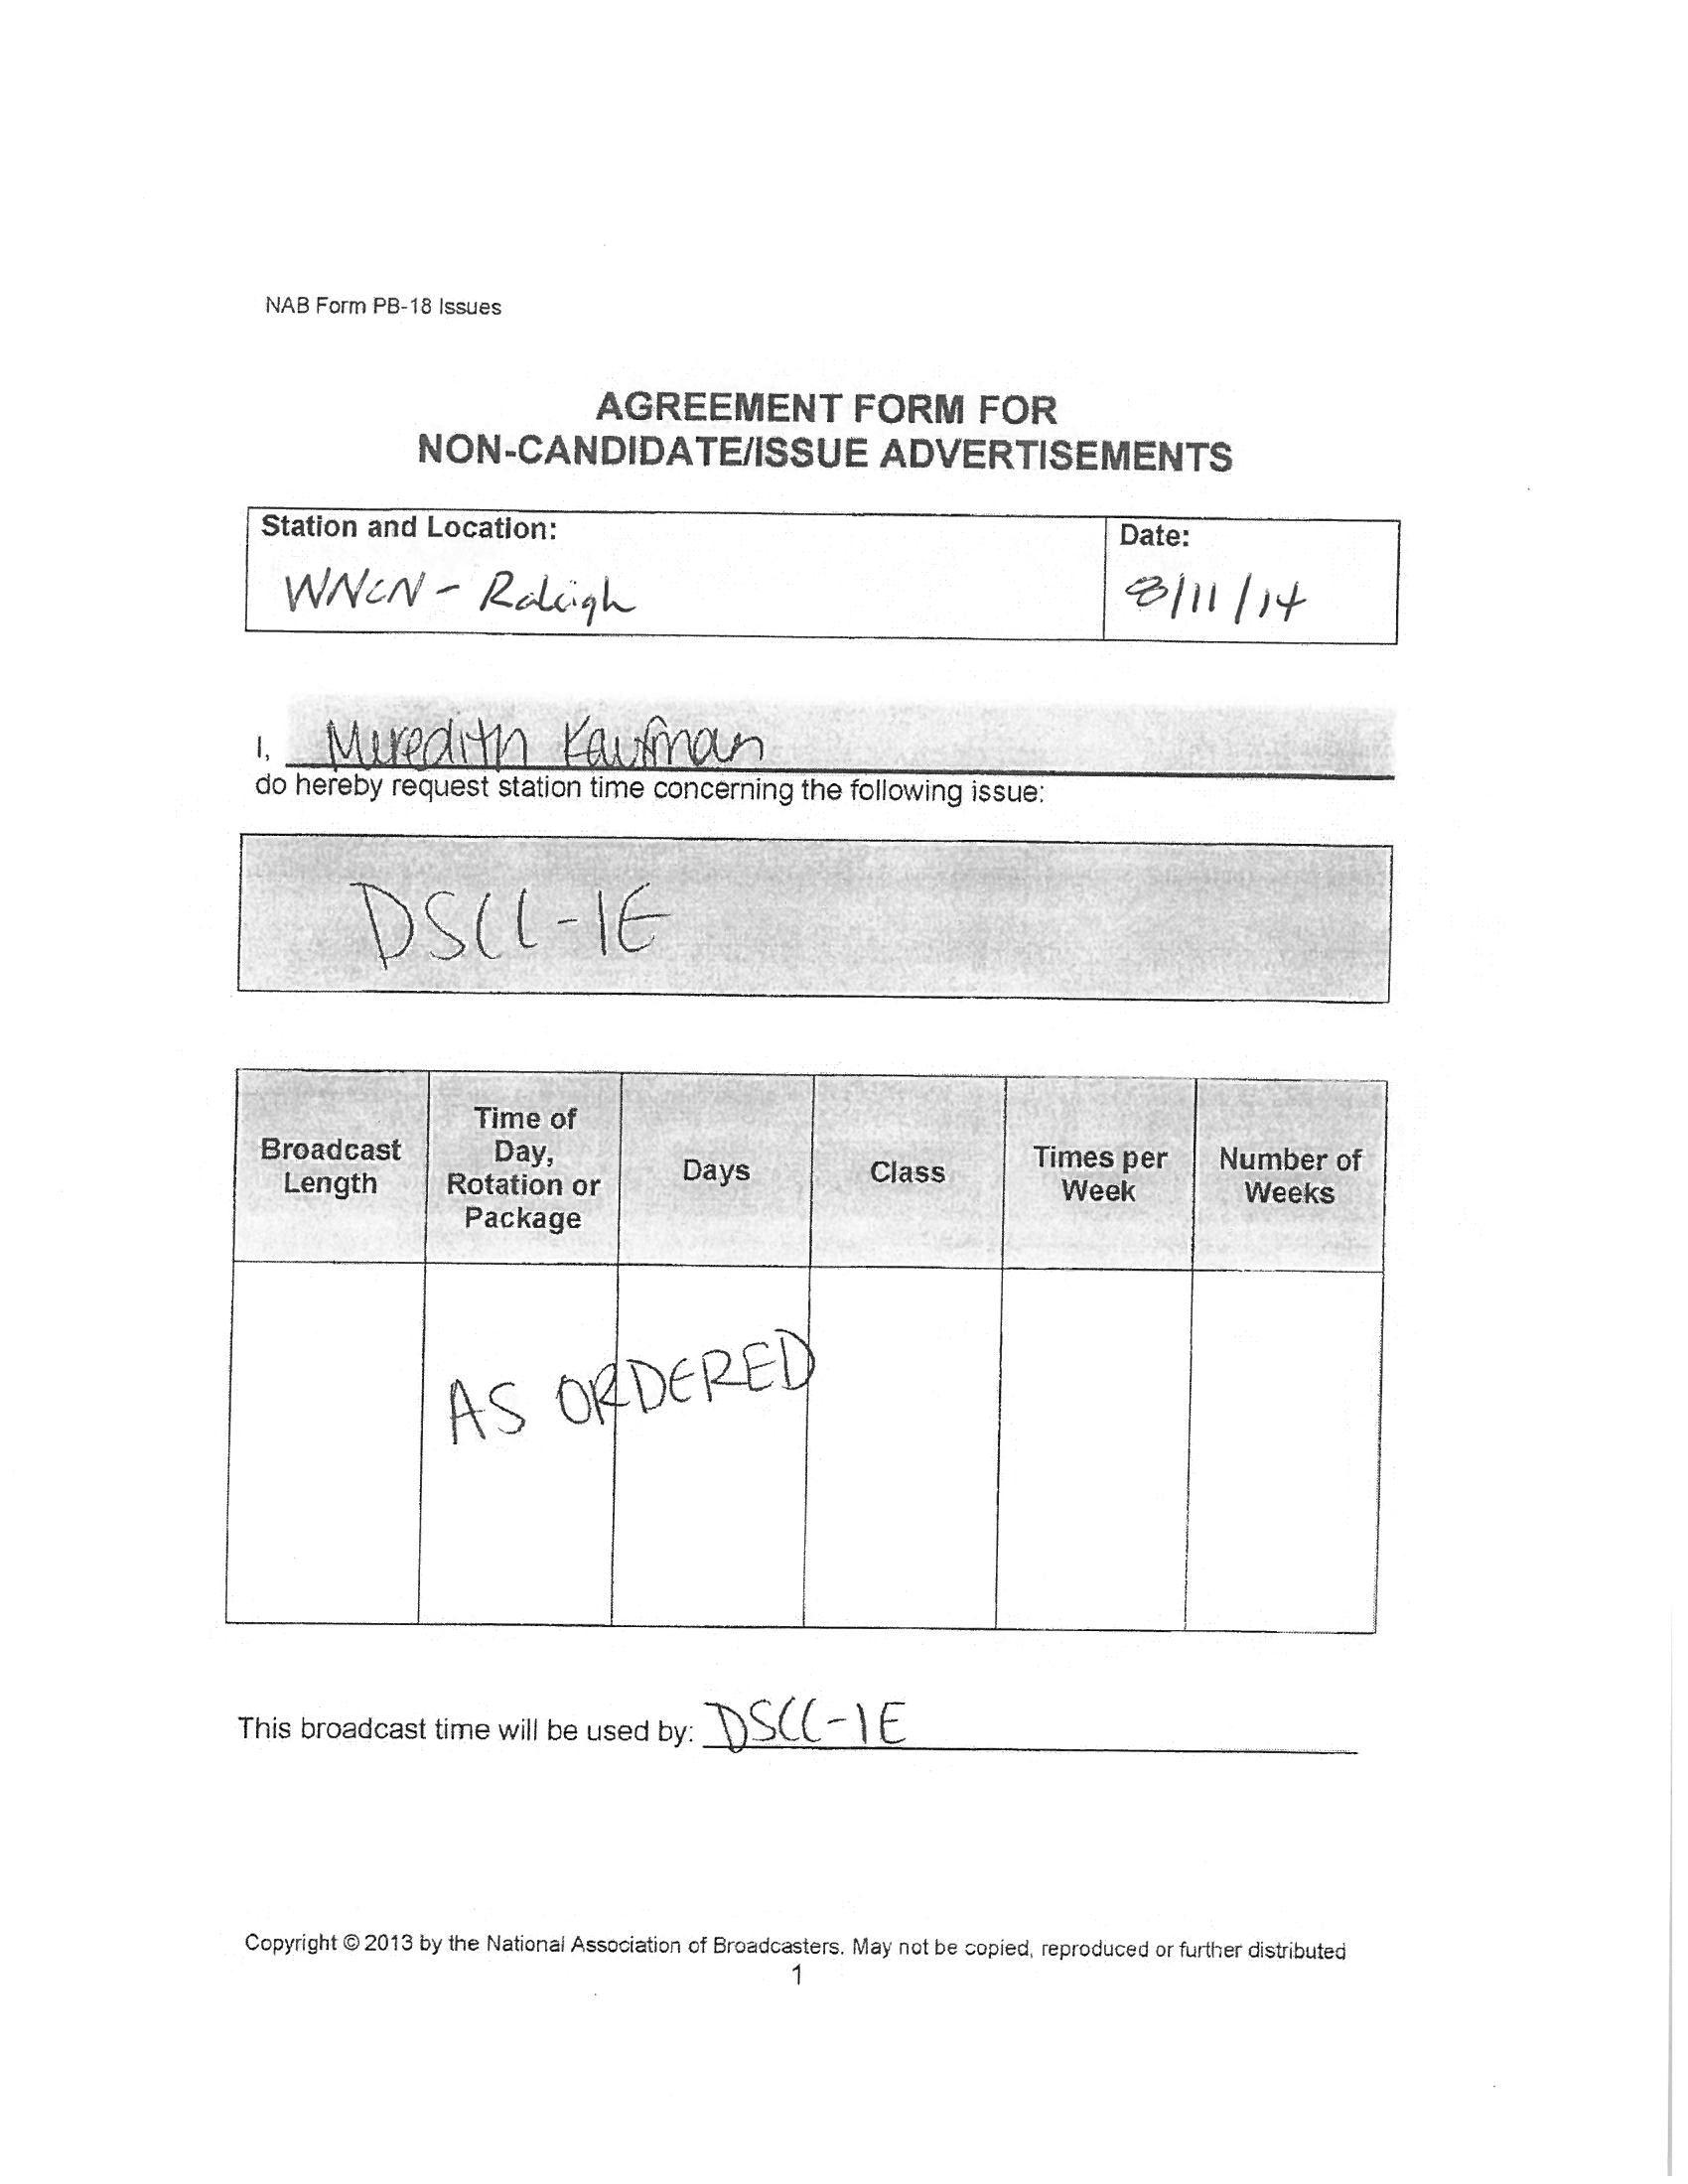 NAB Form PB-18 Issues
AGREEMENT FORM FOR
NON-CANDIDATE/ISSUE ADVERTISEMENTS
Station and Location:
WNCN - Raleigh
Date:
8/11/14
I, Meredith Kaufman
do hereby request station time concerning the following issue:
DSCC-IE
Broadcast Length
Time of Day, Rotation or Package
Days
Class
Times per Week
Number of Weeks
AS ORDERED
This broadcast time will be used by: DSCC-IE
Copyright © 2013 by the National Association of Broadcasters. May not be copied, reproduced or further distributed
1